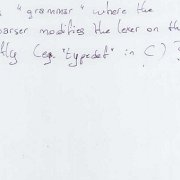 "grammar" where the
parser modifies the lexer on th
(eg. "typedef" in C)